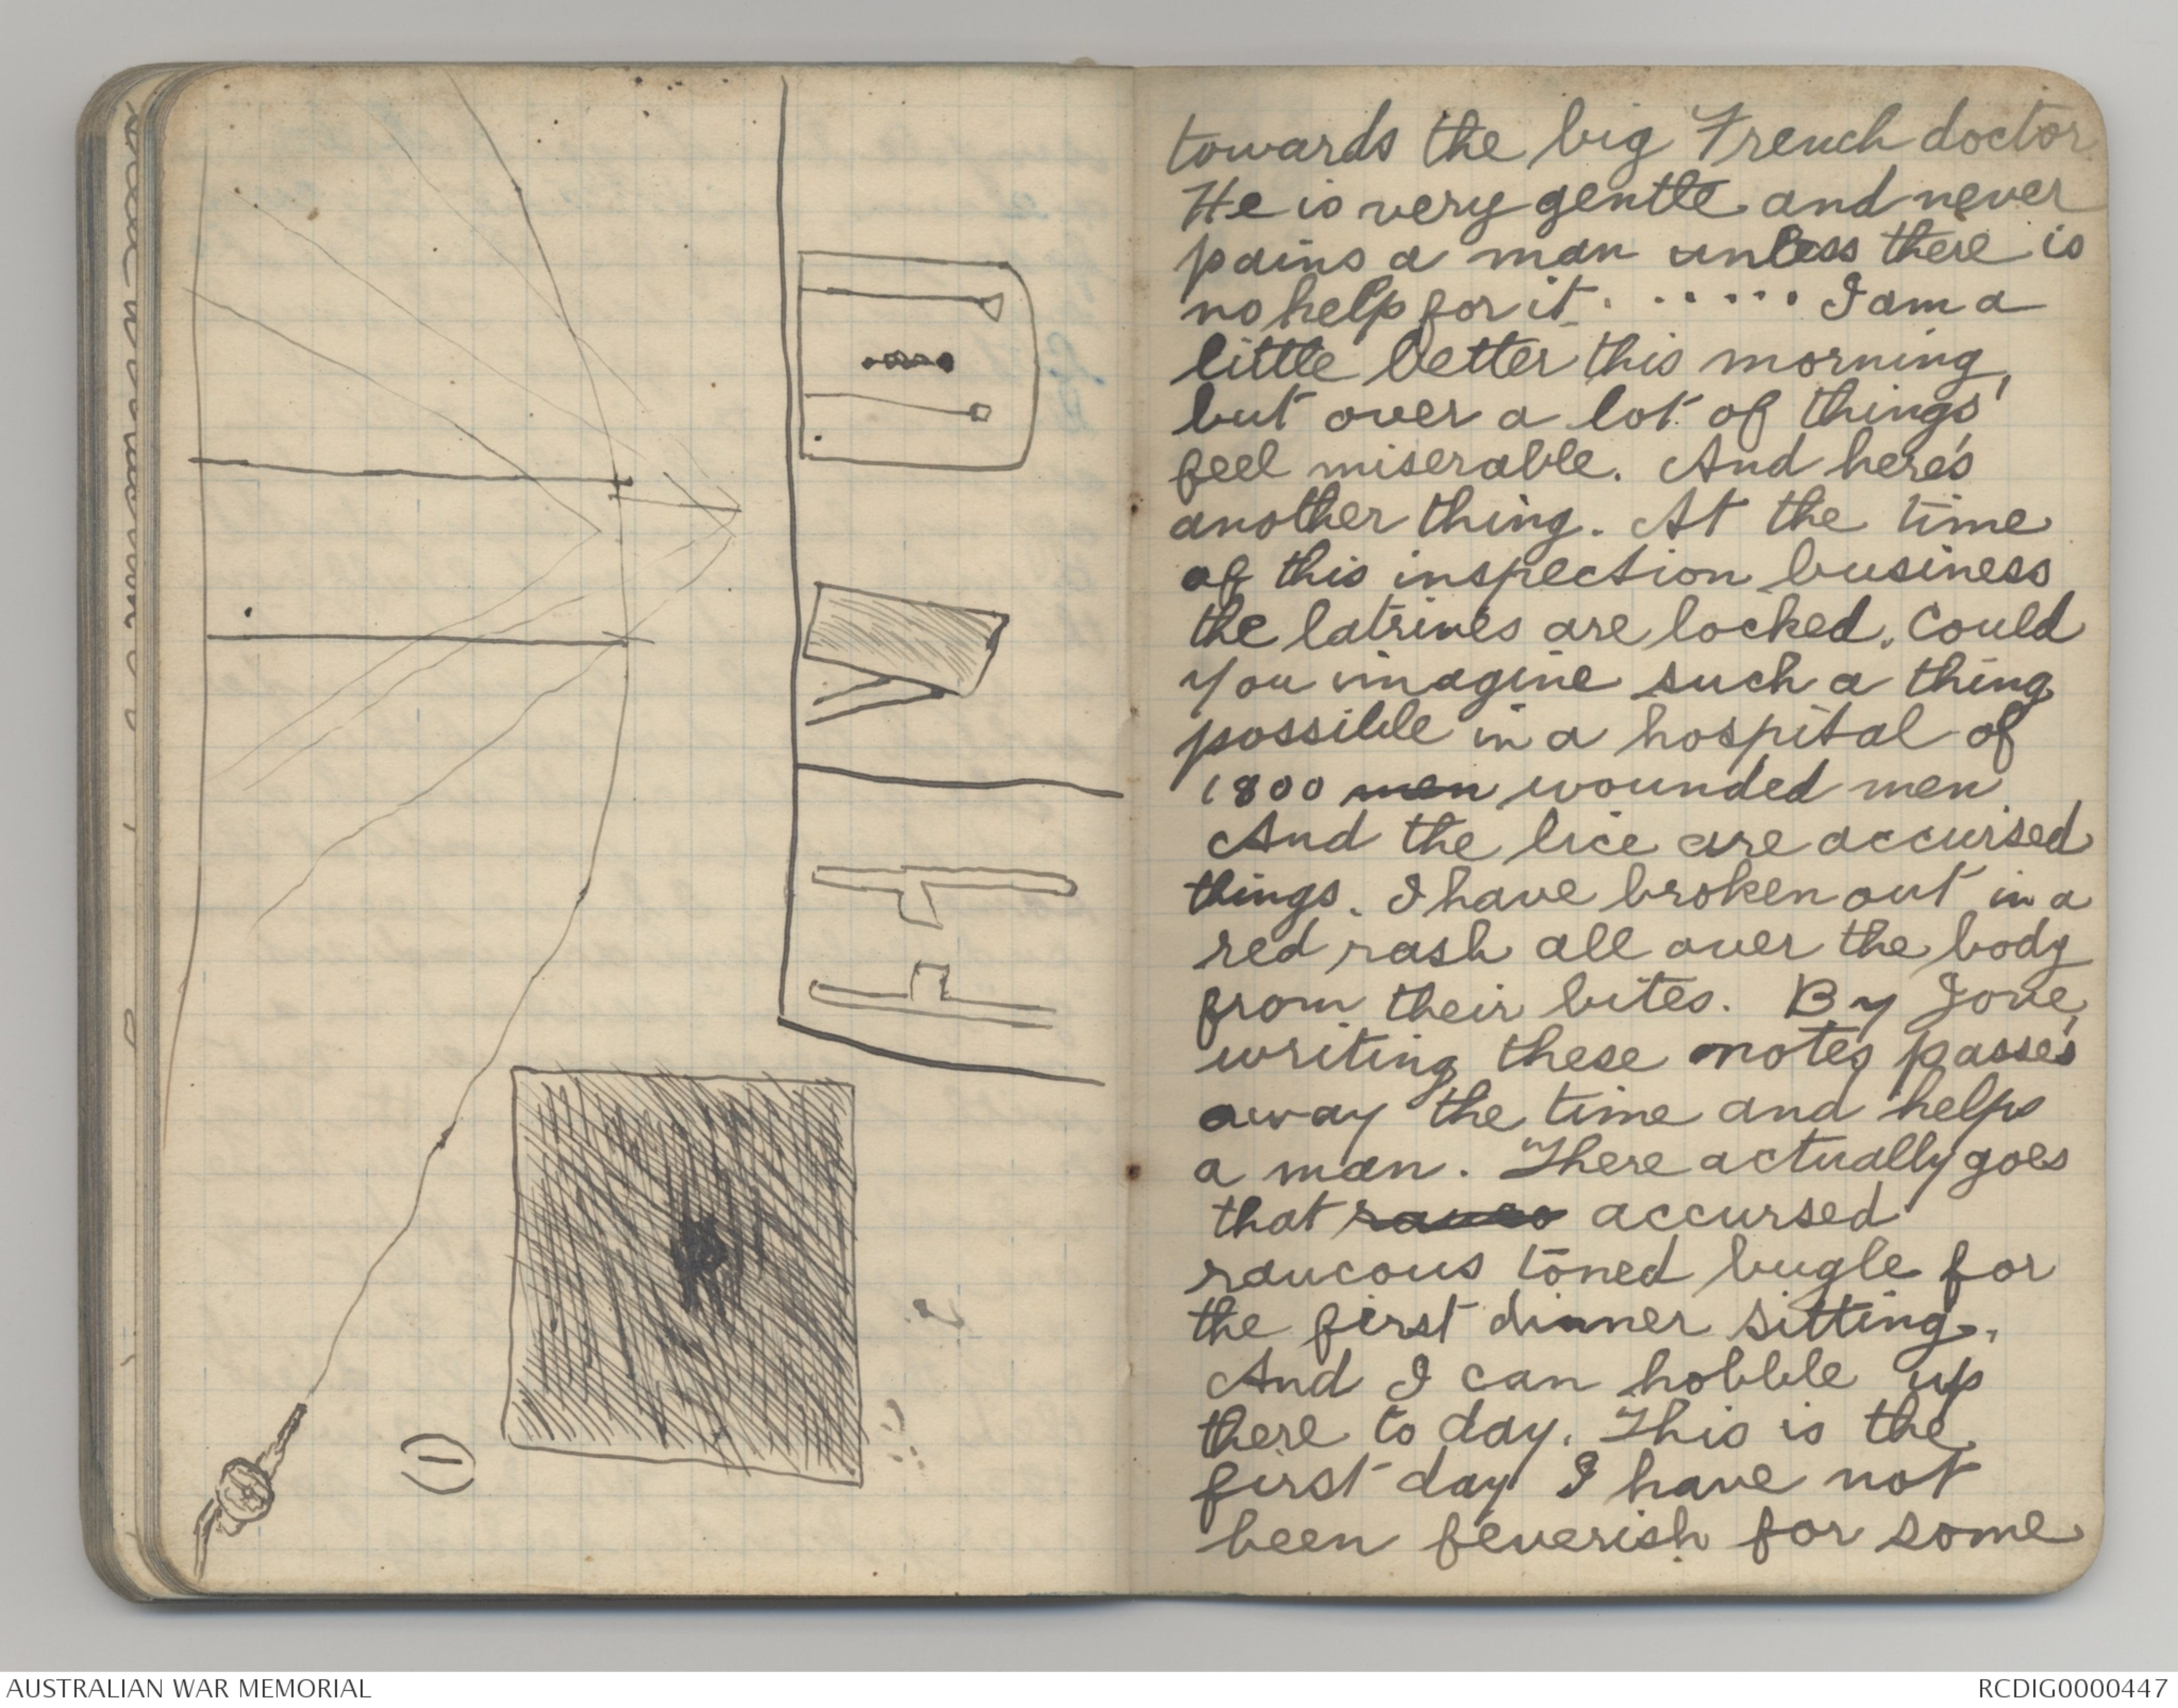 towards the big French doctor
He is very gentle and never
pains a man unless there is
no help for it. . . . . . . I am a
little better this morning,
but over a lot of things
feel miserable. And here's
another thing. At the time
of this inspection business
the latrines are locked. Could
you imagine such a thing
possible in a hospital of
1800 men wounded men
And the lice are accursed
things. I have broken out in a
red rash all over the body
from their bites. By Jove,
writing these notes passes
away the time and helps
a man. There actually goes
that accursed
raucous toned bugle for
the first dinner sitting.
And I can hobble up
there to day. This is the
first day I have not
been feverish for some
AUSTRALIAN WAR MEMORIAL
RCDIG0000447